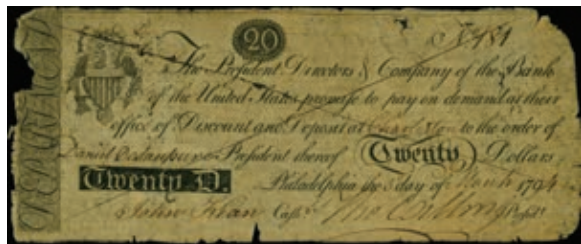 20
The President Directors & Company of the Bank
of the United States promise to pay on demand at their
office of Discount and Deposit at Charleston to the order of
Daniel President thereof Twenty Dollars
Twenty D. Philadelphia the day of March 179
John Kean Cash.r Tho Willing Presid.t